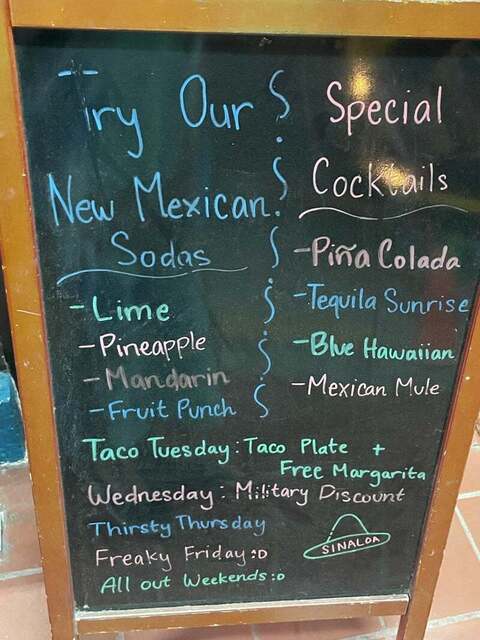 Try Our
New Mexican
Sodas
-Lime
-Pineapple
-Mandarin
-Fruit Punch
Special
Cocktails
-Piña Colada
-Tequila Sunrise
-Blue Hawaiian
-Mexican Mule
Taco Tuesday: Taco Plate +
Free Margarita
Wednesday: Military Discount
Thirsty Thursday
Freaky Friday:D
All out Weekends:D
SINALOA